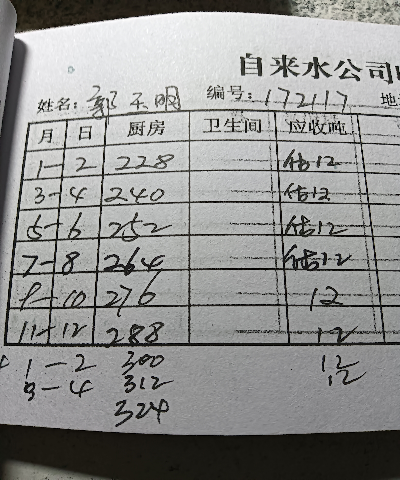 自来水公司
姓名: 郭天明 编号: 172117 地
月 日 厨房 卫生间 应收吨
1-2 228 估12
3-4 240 估12
5-6 252 估12
7-8 264 估12
9-10 276 12
11-12 288 12
1-2 300 12
3-4 312 12
324